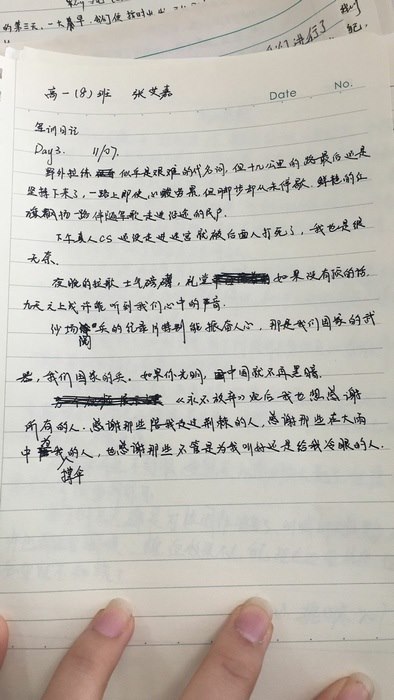 的第三天，一大暴早，我们便
们进行了
高一(8)班 张 嘉
Date No.
军训日记
Day3. 11/07.
野外拉练 似乎是艰难的代名词，但十几公里的路最后还是
坚持下来了，一路上即使心酸劳累，但脚步却从未停歇，鲜艳的红
旗飘扬一路伴随军歌走进沿途的民户。
下午真人CS 还没走进迷宫就被后面人打死了，我也是很
无奈。
夜晚的拉歌士气磅礴，礼堂 如果没有顶的话，
九天之上或许能听到我们心中的声音。
沙场阅兵的纪录片特别能振奋人心，那是我们国家的武
器，我们国家的兵。如果你光明，中国就不再黑暗。
《永不放弃》走后我也想感谢
所有的人，感谢那些陪我走过荆棘的人，感谢那些在大雨
中为我撑伞的人，也感谢那些不管是为我叫好还是给我冷眼的人.